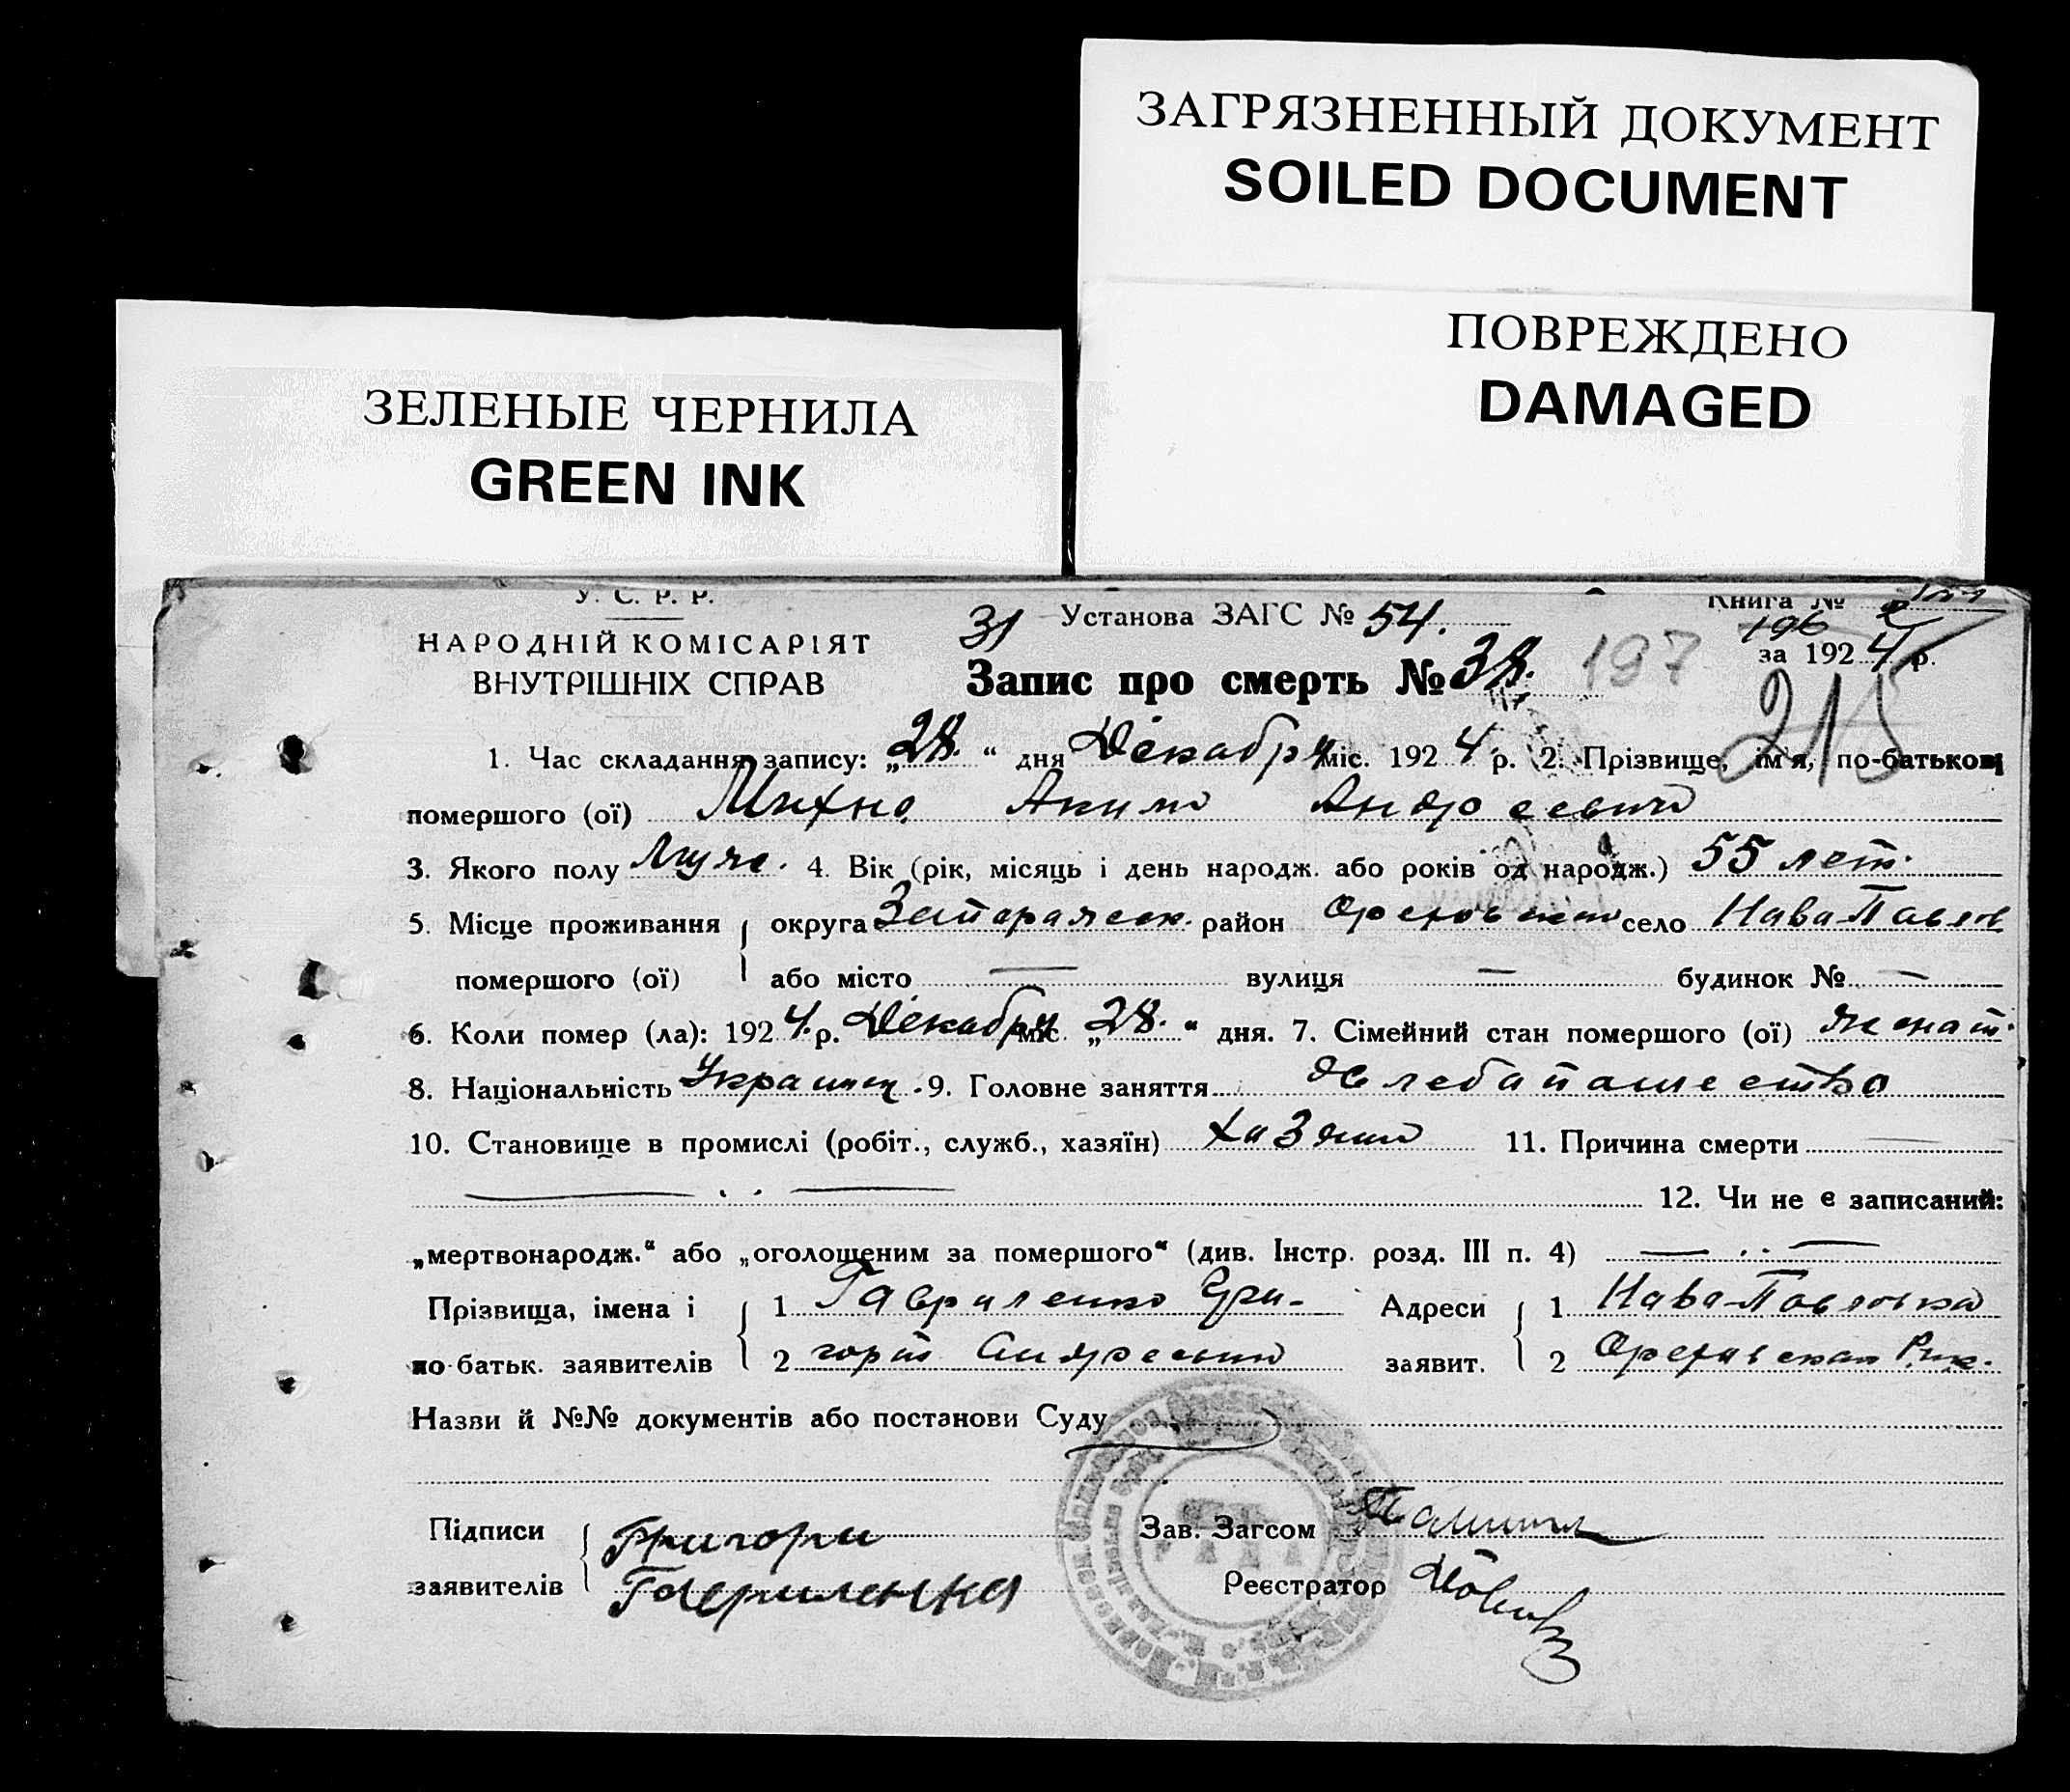 ЗАГРЯЗНЕННЫЙ ДОКУМЕНТ
SOILED DOCUMENT
ПОВРЕЖДЕНО
DAMAGED
ЗЕЛЕНЫЕ ЧЕРНИЛА
GREEN INK
У. С. Р. Р.
НАРОДНІЙ КОМІСАРІЯТ
ВНУТРІШНІХ СПРАВ
31 Установа ЗАГС № 54.
Книга № 2
196
за 1924 р.
Запис про смерть № 197
215
1. Час складання запису: „28.“ дня Декабря міс. 1924 р. 2. Прізвище, ім'я, по-батькові
помершого (ої) Михно Аким Андреевич
3. Якого полу Муже. 4. Вік (рік, місяць і день народж. або років од народж.) 55 лет.
5. Місце проживання округа Запорожск. район село Нава Павлов
помершого (ої) або місто — вулиця — будинок № —
6. Коли помер (ла): 1924. р. Декабря міс. „28.“ дня. 7. Сімейний стан помершого (ої) женат.
8. Національність Украинец. 9. Головне заняття Хлебапашество
10. Становище в промислі (робіт., служб., хазяїн) хазяин 11. Причина смерти —
— . . — 12. Чи не є записаний:
„мертвонародж.“ або „оголошеним за помершого“ (див. Інстр. розд. III п. 4) — . . —
Прізвища, імена і 1 Гавриленко Гри- Адреси 1 Нава-Павловка
по-батьк. заявителів 2 горий Андреевич заявит. 2
Назви й №№ документів або постанови Суду
Підписи Григори Зав. Загсом
заявителів Гавриленка Реєстратор